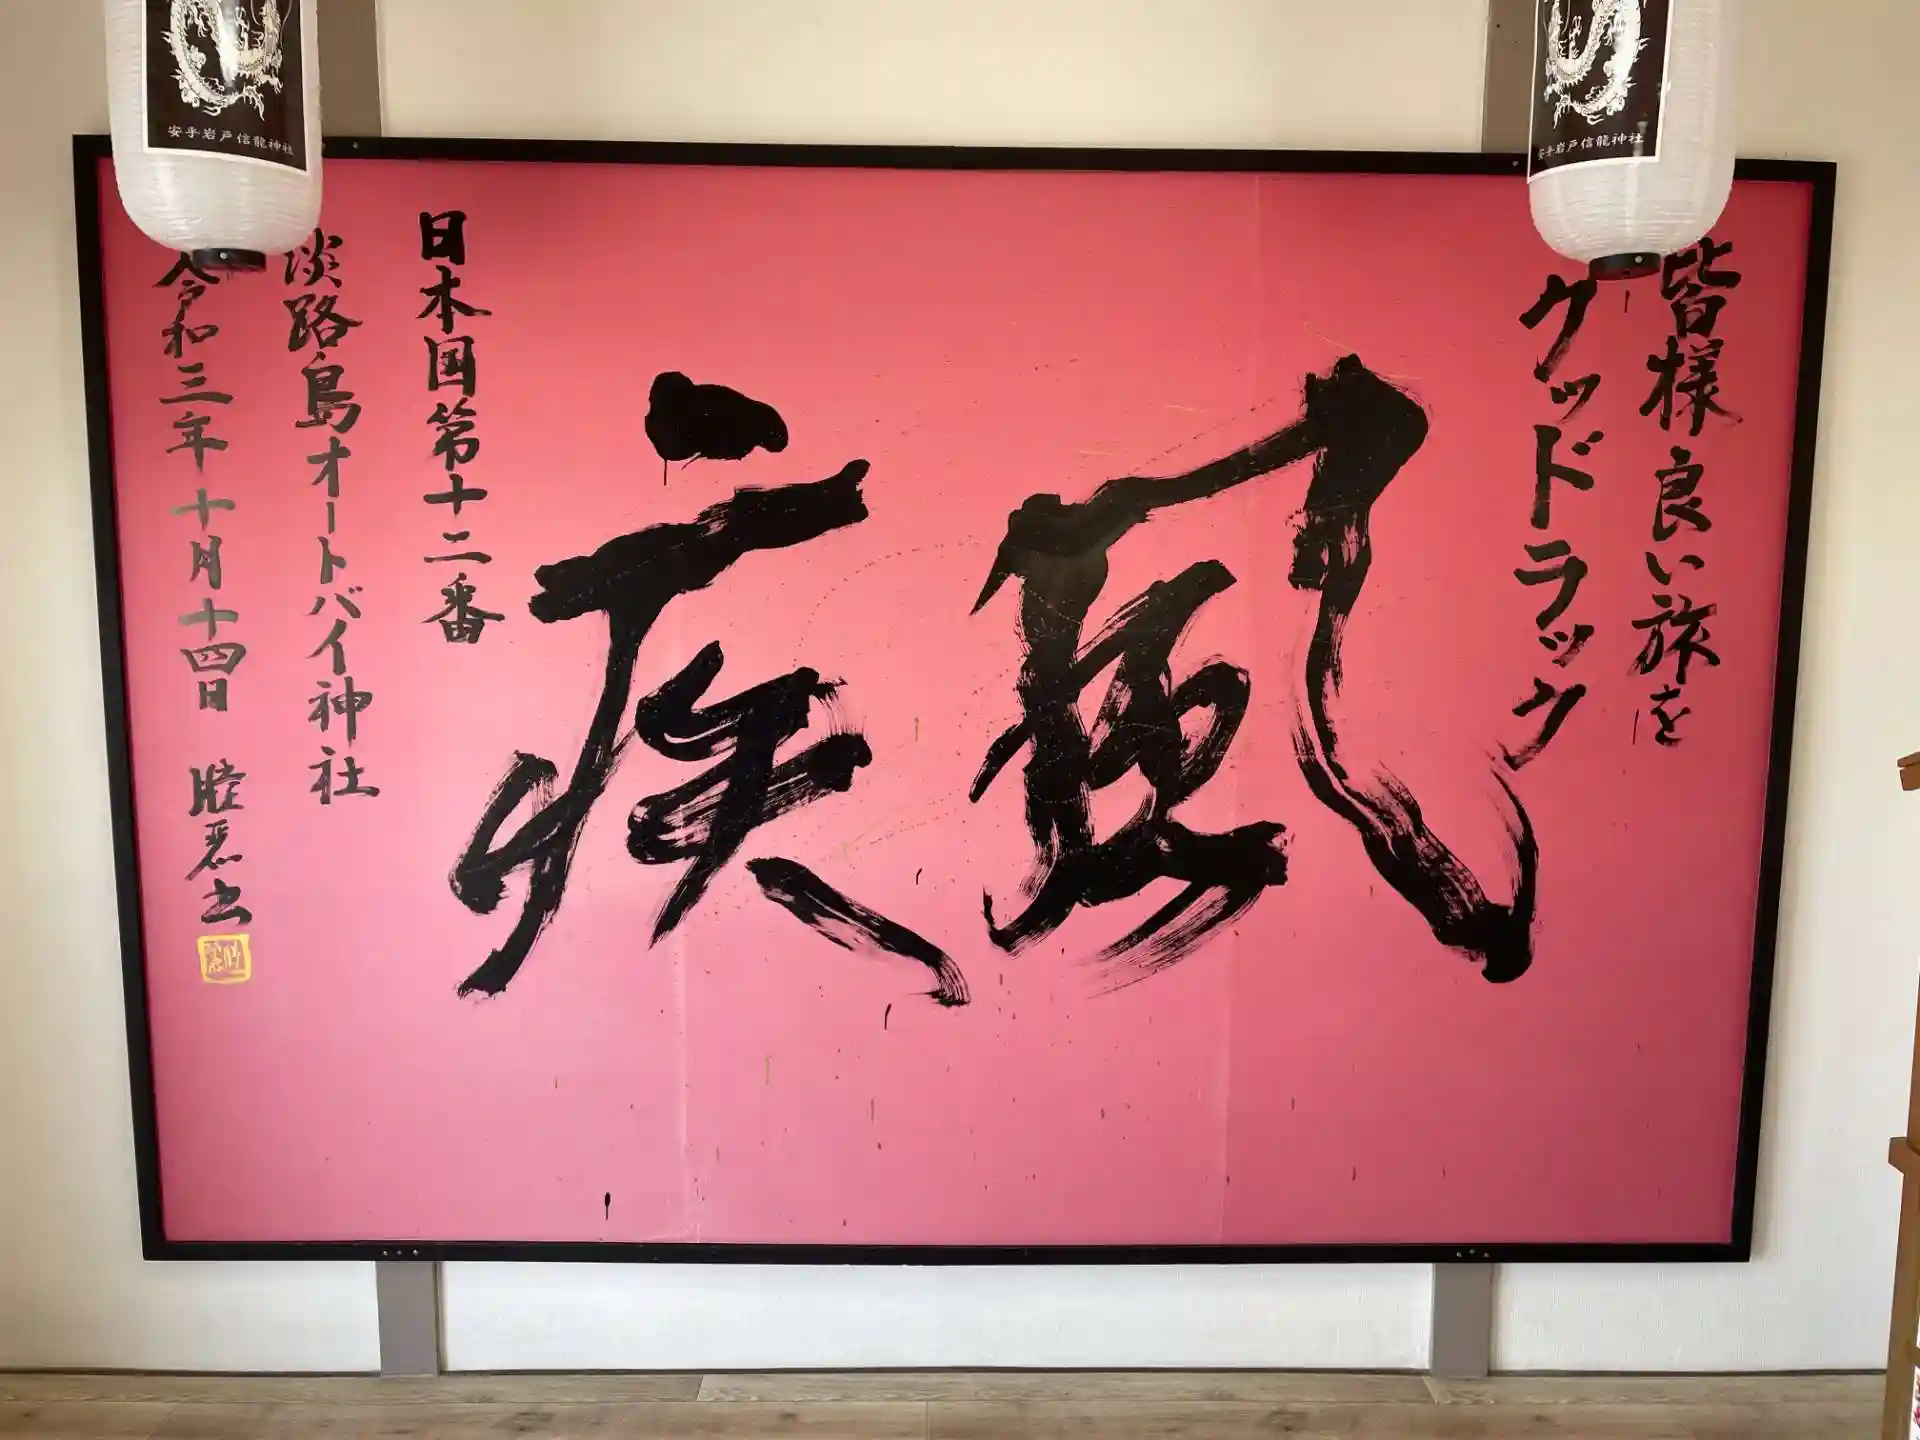 皆様良い旅を
グッドラック
疾風
日本国第十二番
淡路島オートバイ神社
令和三年十月十四日
安乎岩戸信龍神社
安乎岩戸信龍神社